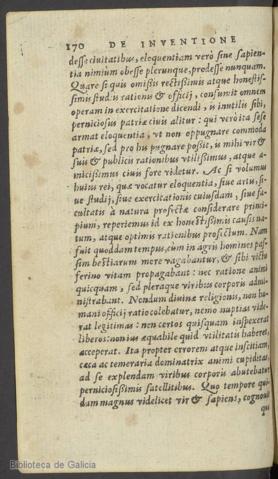 170 DE INVENTIONE
desse ciuitatibus, eloquentiam verò sine sapien-
tia nimium obesse plerunque, prodesse nunquam.
Quare si quis omißis rectißimis atque honestis-
simis studijs rationis & officij, consumit omnem
operam in exercitatione dicendi, is inutilis sibi,
perniciosus patriæ ciuis alitur: qui verò ita sese
armat eloquentia, vt non oppugnare commoda
patriæ, sed pro his pugnare poßit, is mihi vir &
suis & publicis rationibus vtilißimus, atque a-
micißimus ciuis fore videtur. Ac si volumus
huius rei, quæ vocatur eloquentia, siue artis, si-
ue studij, siue exercitationis cuiusdam, siue fa-
cultatis à natura profectæ considerare princi-
pium, reperiemus id ex honestißimis causis na-
tum, atque optimis rationibus profectum. Nam
fuit quoddam tempus, cum in agris homines pas-
sim bestiarum more vagabantur, & sibi victu
ferino vitam propagabant: nec ratione animi
quicquam, sed pleraque viribus corporis admi-
nistrabant. Nondum diuinæ religionis, non hu-
mani officij ratio colebatur, nemo nuptias vide-
rat legitimas: non certos quisquam inspexerat
liberos: non ius æquabile quid vtilitatis haberet,
acceperat. Ita propter errorem atque inscitiam,
cæca ac temeraria dominatrix animi cupiditas
ad se explendam viribus corporis abutebatur
perniciosißimis satellitibus. Quo tempore quo-
dam magnus videlicet vir & sapiens, cognouit
qui
Biblioteca de Galicia